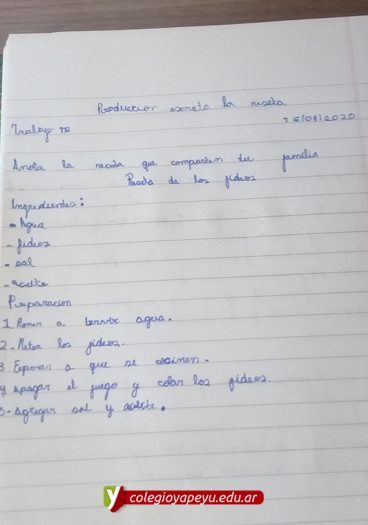 Produccion escrita la receta
Trabajo
16/09/2020
Anota la receta que comparten tu familia
Receta de los fideos
Ingredientes:
- Agua
- fideos
- sal
- aceite
Preparacion
1. Poner a hervir agua.
2. Meter los fideos.
3 Esperar a que se cocinen.
4 Apagar el fuego y colar los fideos.
5- Agregar sal y aceite.
colegioyapeyu.edu.ar